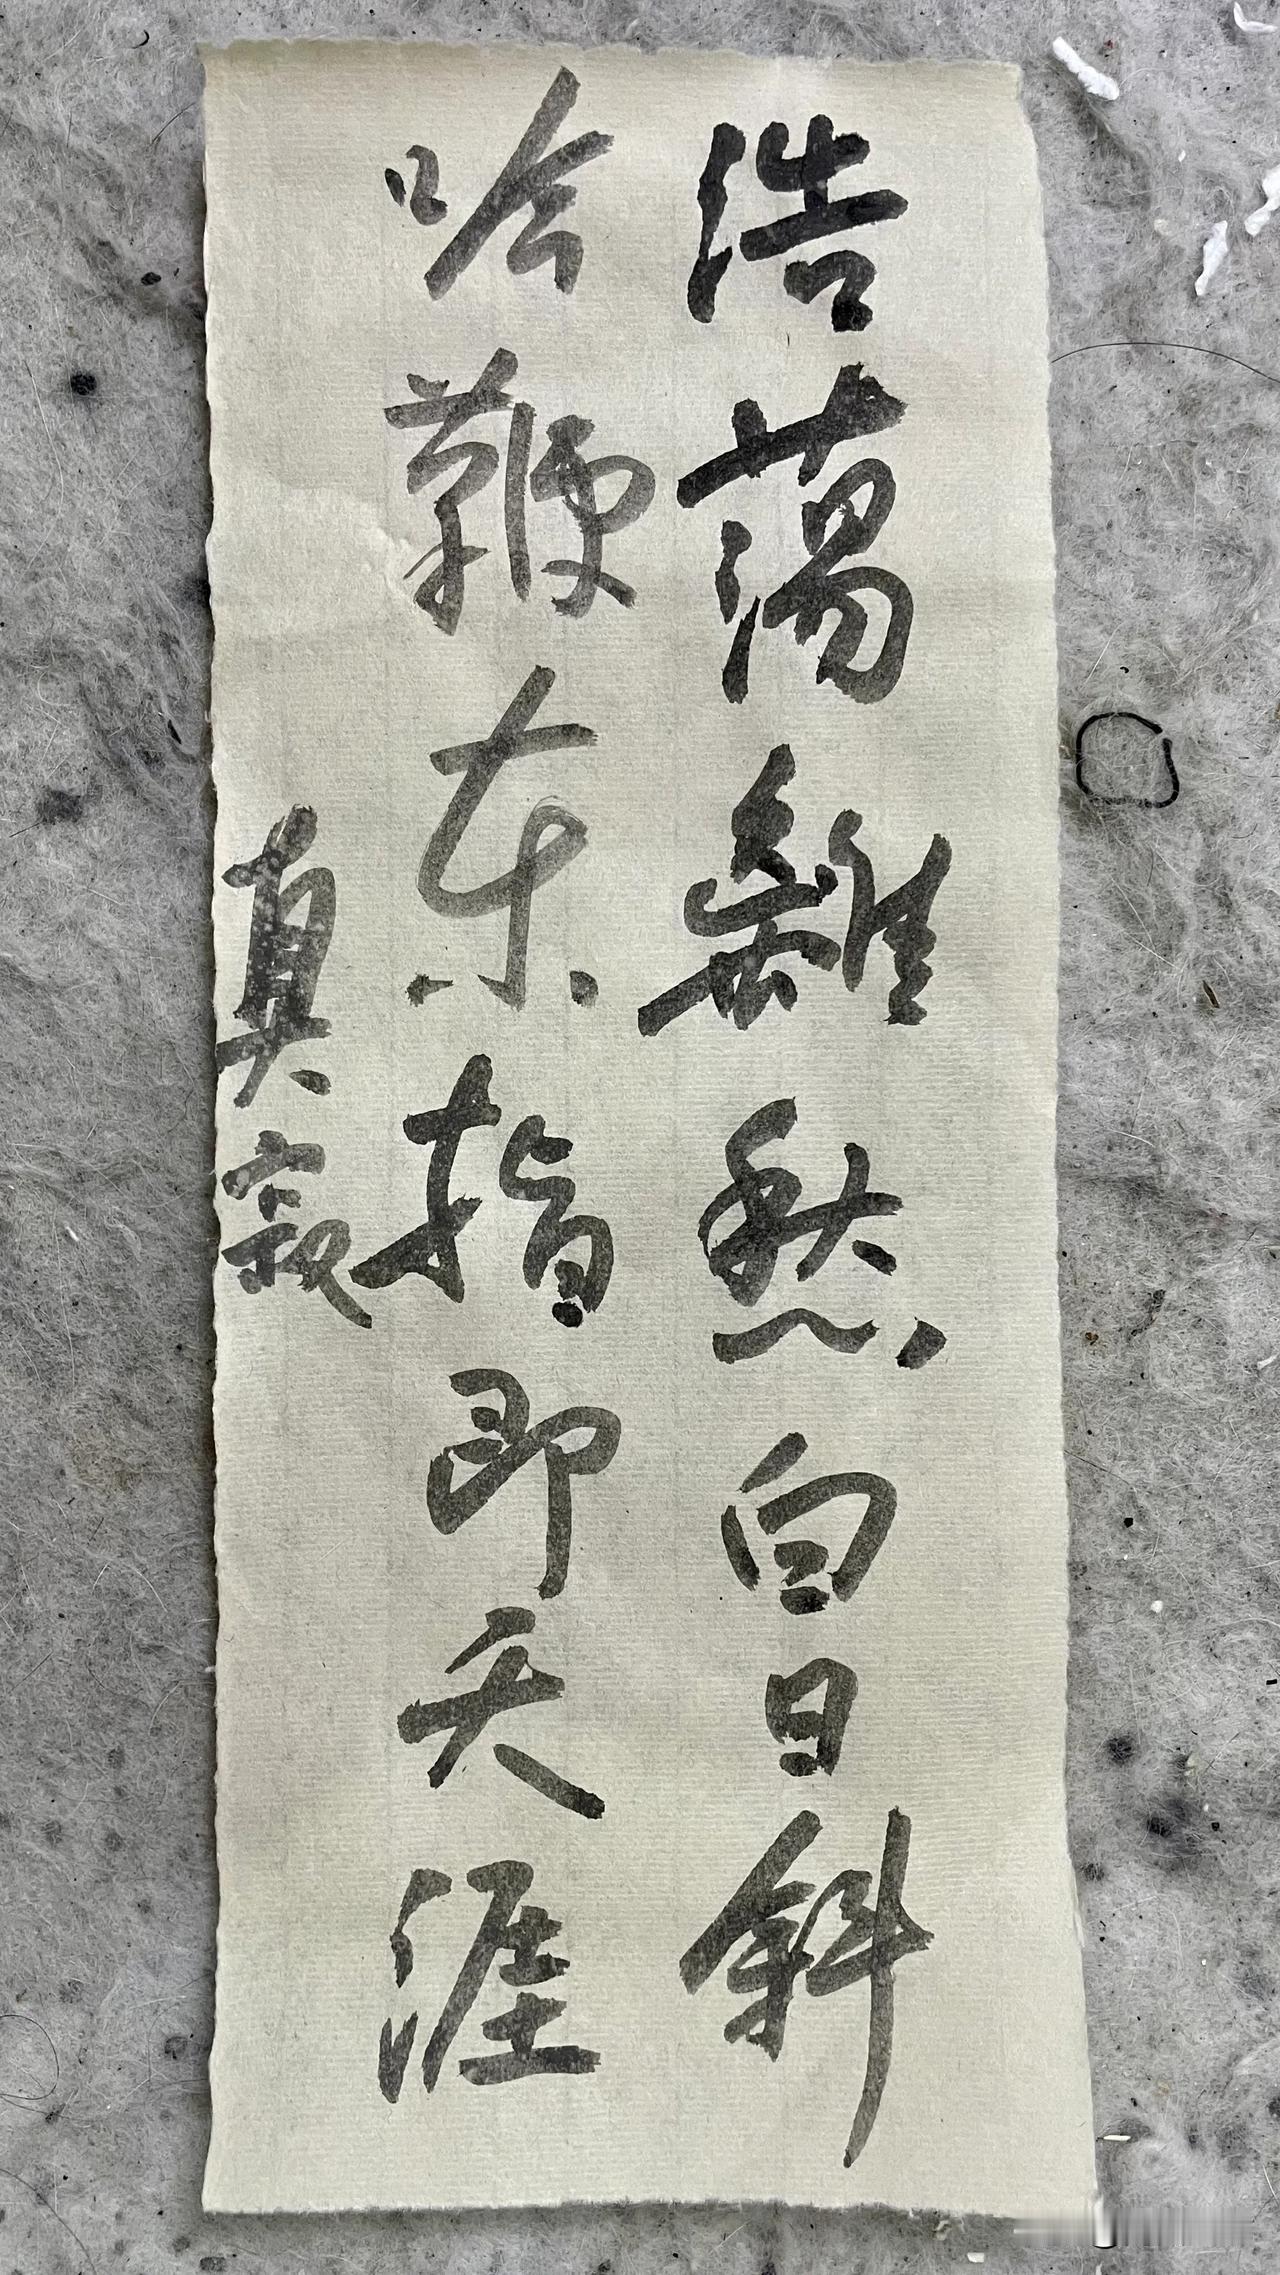 浩蕩離愁白日斜
吟鞭东指即天涯
真寂